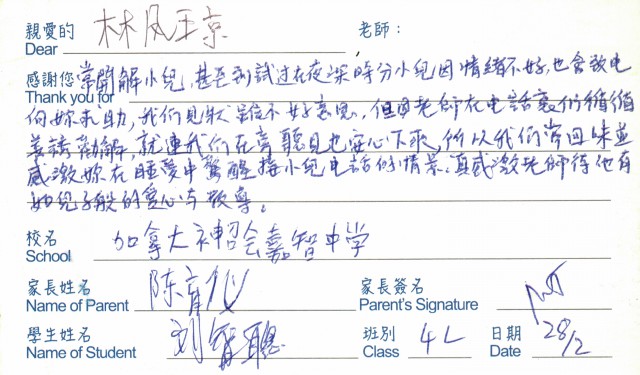 親愛的 林凤玉京 老師：
Dear
感謝您 常開解小兒，甚至刻試过在夜深時分小兒因情緒不好，也會致电
Thank you for
向妳求助，我们見狀 不好意思，但因老師在电話裏们循循
善誘勸解，就連我们在旁聽見也安心下來，所以我们常回味並
感激妳在睡夢中驚醒接小兒电話的情景。真感激老師待他有
如兒子般的爱心与教導。
校名 加拿大神召会嘉智中学
School
家長姓名 陈 家長簽名
Name of Parent Parent's Signature
學生姓名 刘智聰 班別 4L 日期 28/2
Name of Student Class Date